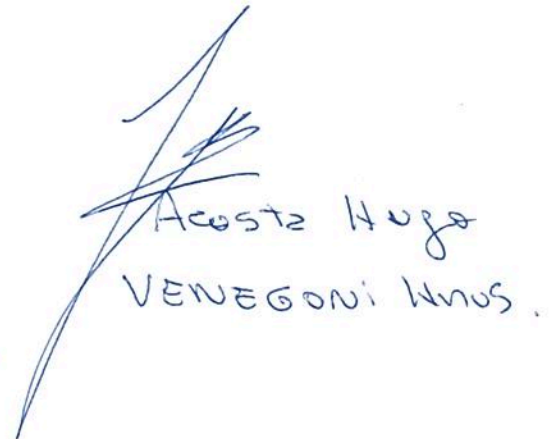 Acosta Hugo
VENEGONI HNOS.